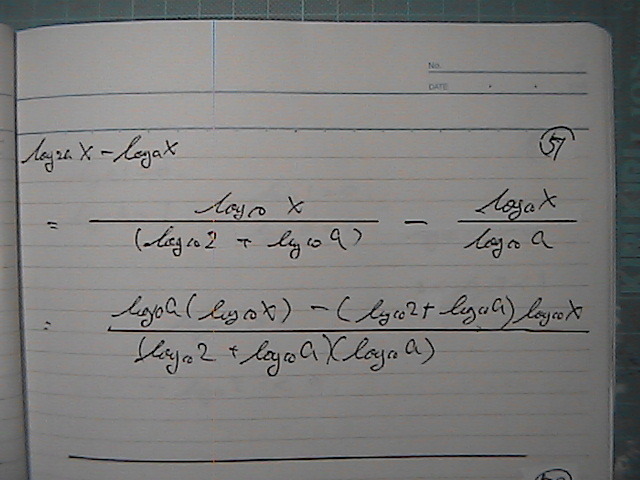 No.
DATE
log₂ₐ X - logₐ X
57
= log₁₀ X / (log₁₀ 2 + log₁₀ a) - log₁₀ X / log₁₀ a
= log₁₀ a (log₁₀ X) - (log₁₀ 2 + log₁₀ a) log₁₀ X / (log₁₀ 2 + log₁₀ a)(log₁₀ a)